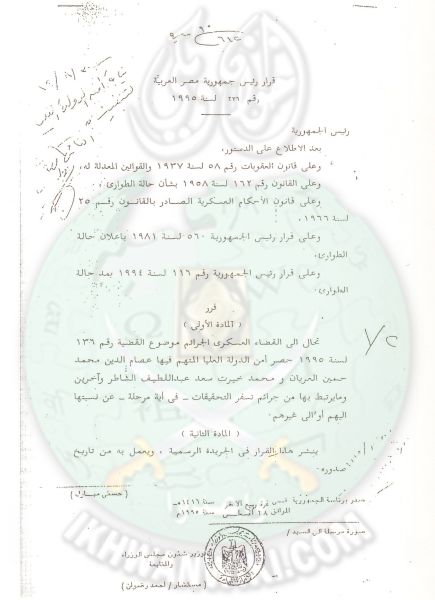 قرار رئيس جمهورية مصر العربية
رقم ٢٣٦ لسنة ١٩٩٥
رئيس الجمهورية
بعد الاطلاع على الدستور،
وعلى قانون العقوبات رقم ٥٨ لسنة ١٩٣٧ والقوانين المعدلة له،
وعلى القانون رقم ١٦٢ لسنة ١٩٥٨ بشأن حالة الطوارئ،
وعلى قانون الأحكام العسكرية الصادر بالقانون رقم ٢٥
لسنة ١٩٦٦،
وعلى قرار رئيس الجمهورية ٥٦٠ لسنة ١٩٨١ باعلان حالة
الطوارئ،
وعلى قرار رئيس الجمهورية رقم ١١٦ لسنة ١٩٩٤ بمد حالة
الطوارئ،
قرر
( المادة الأولى )
تحال الى القضاء العسكرى الجرائم موضوع القضية رقم ١٣٦
لسنة ١٩٩٥ حصر أمن الدولة العليا المتهم فيها عصام الدين محمد
حسين العريان و محمد خيرت سعد عبداللطيف الشاطر وآخرين
ومايرتبط بها من جرائم تسفر التحقيقات – فى أية مرحلة – عن نسبتها
اليهم أو الى غيرهم.
( المادة الثانية )
ينشر هذا القرار فى الجريدة الرسمية ، ويعمل به من تاريخ
صدوره.
( حسنى مبارك )
صدر برئاسة الجمهورية فى ربيع الآخر سنة ١٤١٦هـ
الموافق أغسطس سنة ١٩٩٥م
صورة مرسلة الى السيد /
وزير شئون مجلس الوزراء
والمتابعة
مستشار / أحمد رضوان
IKHWANWIKI.COM